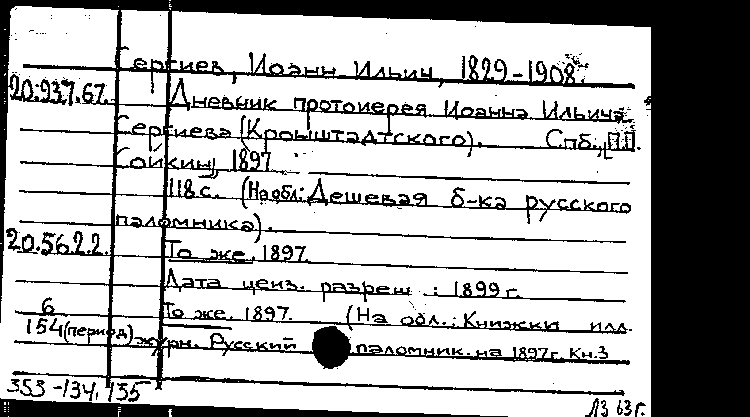 Сергиев, Иоанн Ильич, 1829-1908.
20.937.67. Дневник протоиерея Иоанна Ильича
Сергиева (Кронштадтского). Спб., [П.П.
Сойкин], 1897
118 с. (На обл.: Дешевая б-ка русского
паломника).
20.56.2.2. То же. 1897.
Дата ценз. разреш : 1899 г.
6 То же. 1897. (На обл.: Книжки илл.
154 (период) журн. Русский паломник. на 1897г. Кн.3
353-134, 135
ЛЗ 63 г.